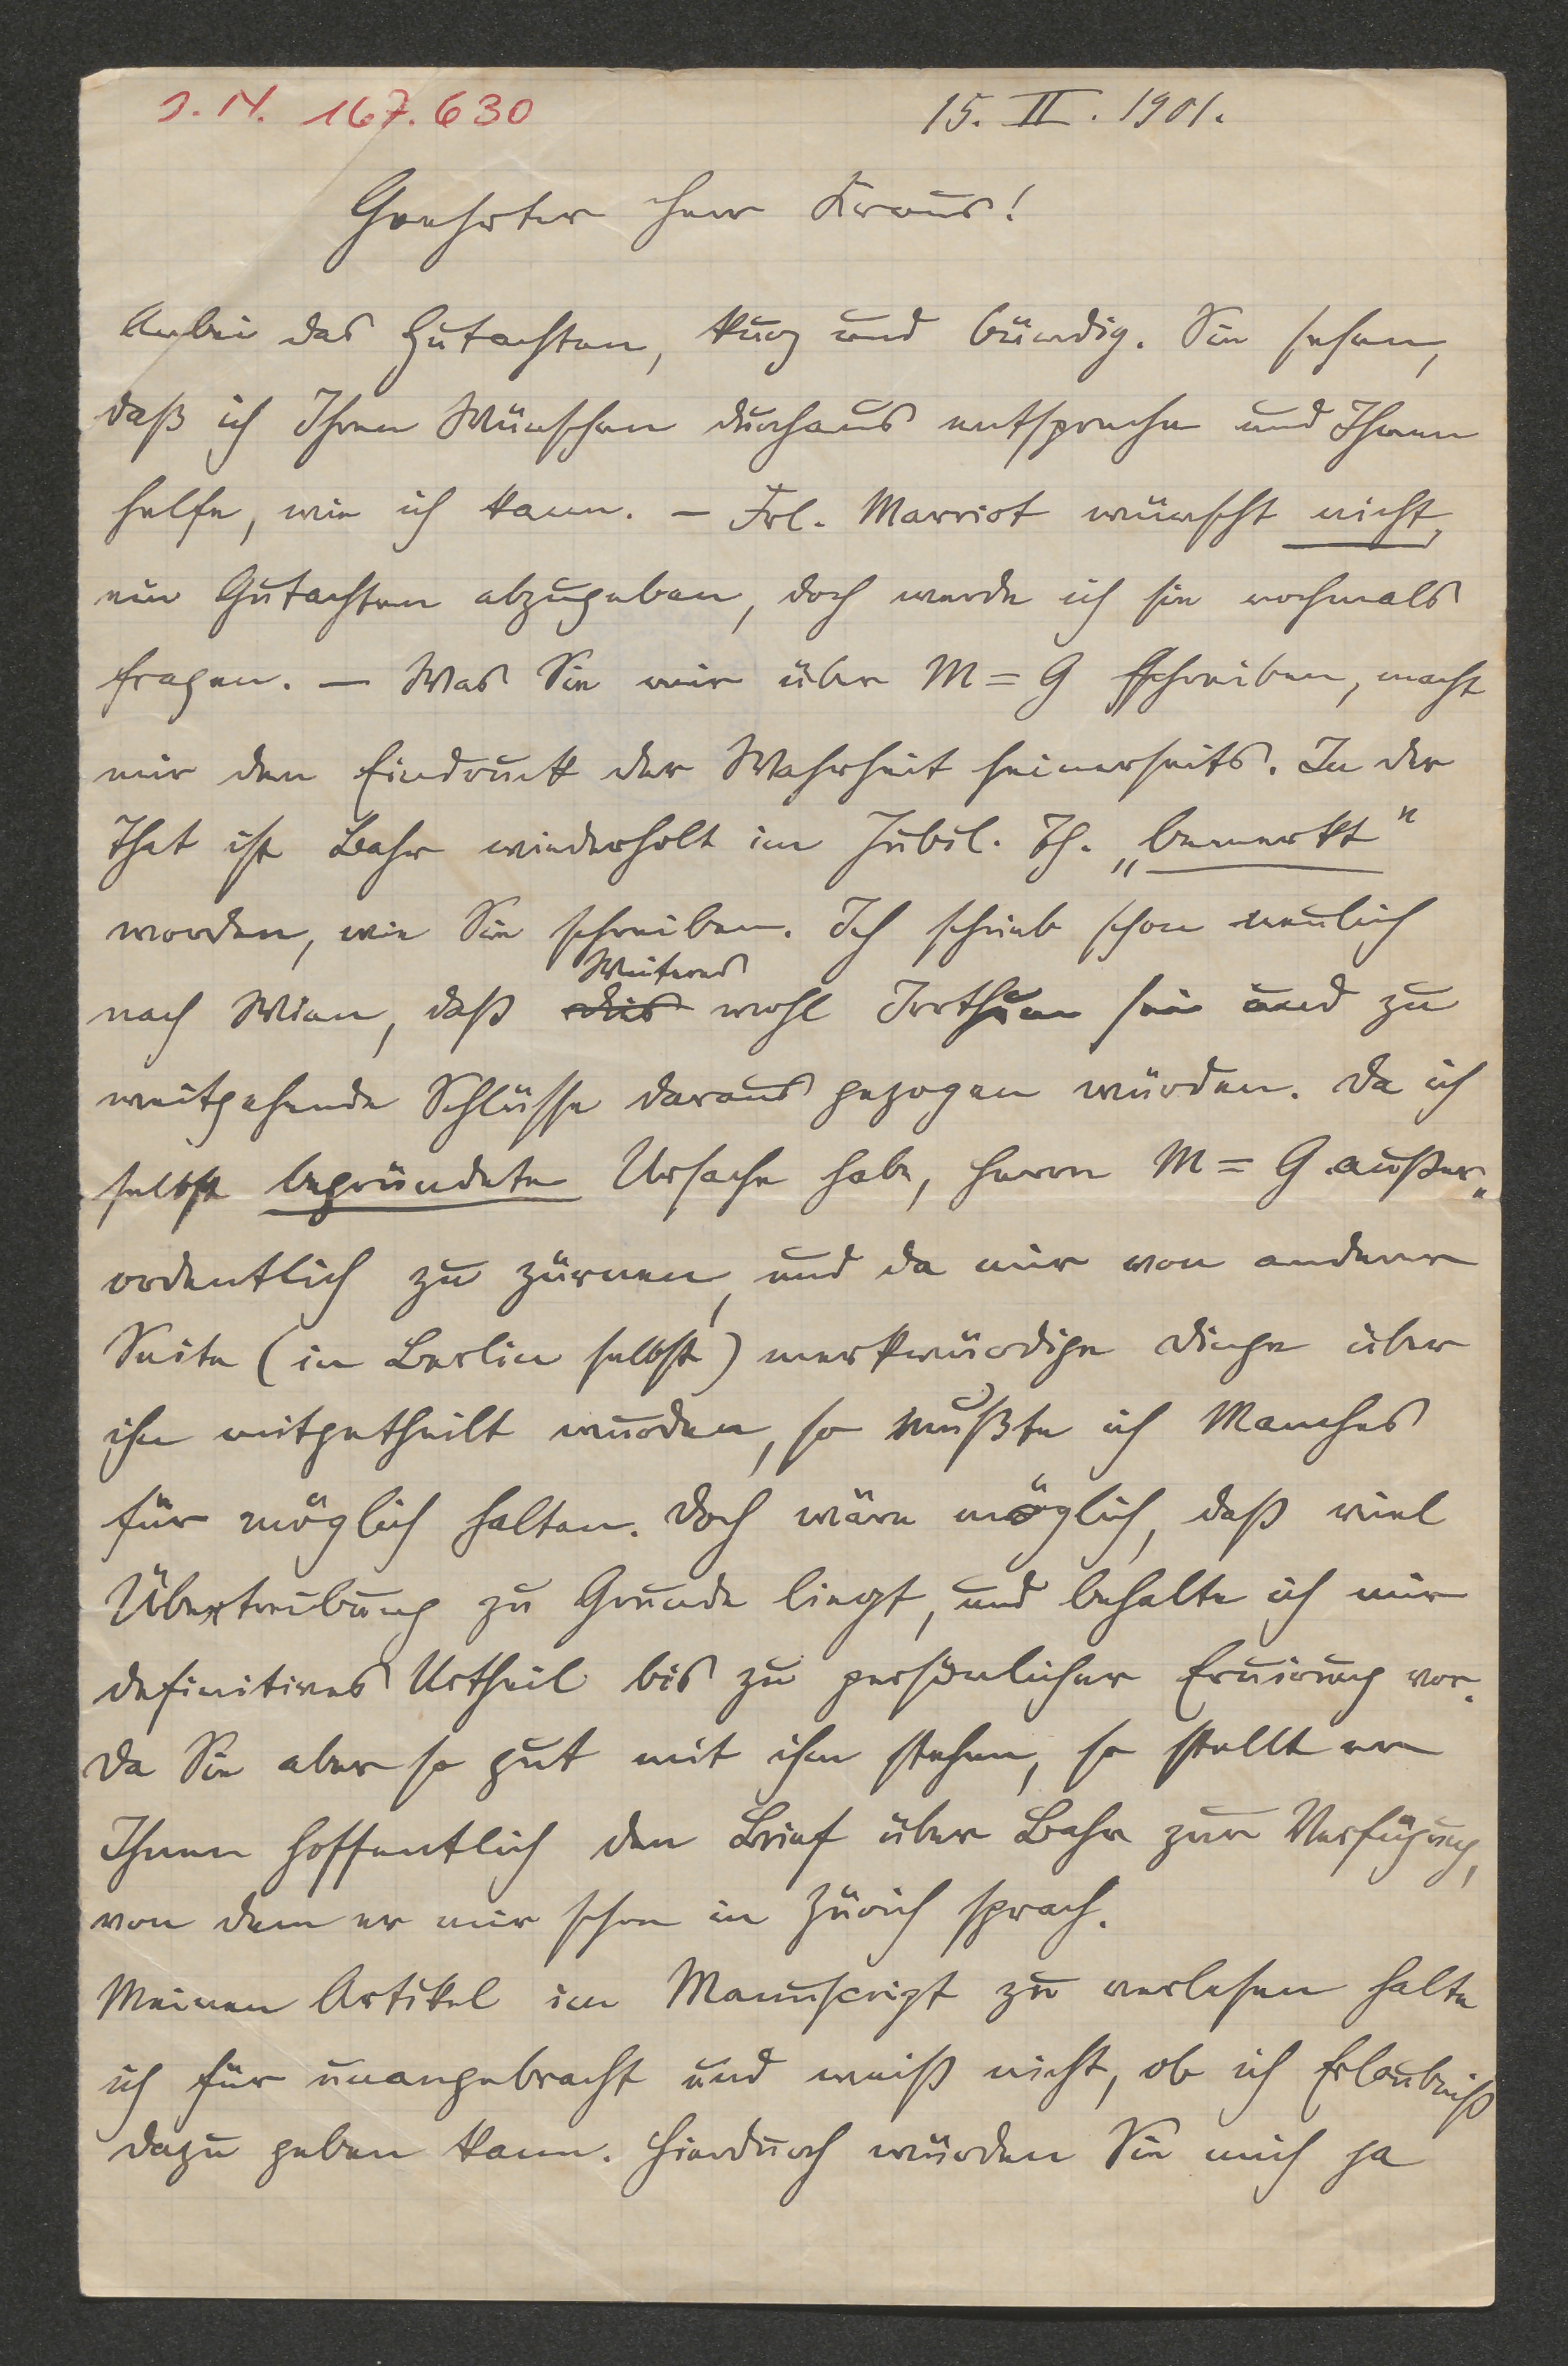 J. N. 167.630
15. II. 1901.
Geehrter Herr Kraus!
Anbei das Gutachten, kurz und bündig. Sie sehen,
daß ich Ihren Wünschen durchaus entspreche und Ihnen
helfe, wie ich kann. – Frl. Marriot wünscht nicht,
ein Gutachten abzugeben, doch werde ich sie nochmals
fragen. – Was Sie mir über M=G schreiben, macht
mir den Eindruck der Wahrheit seinerseits. In der
That ist Bahr wiederholt im Jubil. Th. „bemerkt"
worden, wie Sie schreiben. Ich schrieb schon neulich
Weiteres
nach Wien, daß dies wohl Irrthum sei und zu
weitgehende Schlüsse daraus gezogen würden. Da ich
selbst begründete Ursache habe, Herrn M=G außer„
ordentlich zu zürnen, und da mir von anderer
Seite (in Berlin selbst) merkwürdige Dinge über
ihn mitgetheilt wurden, so mußte ich Manches
für möglich halten. Doch wäre möglich, daß viel
Übertreibung zu Grunde liegt, und behalte ich mir
definitives Urtheil bis zu persönlicher Eruirung vor.
Da Sie aber so gut mit ihm stehen, so stellt er
Ihnen hoffentlich den Brief über Bahr zur Verfügung,
von dem er mir schon in Zürich sprach.
Meinen Artikel im Manuscript zu verlesen halte
ich für unangebracht und weiß nicht, ob ich Erlaubniß
dazu geben kann. Hierdurch würden Sie mich ja